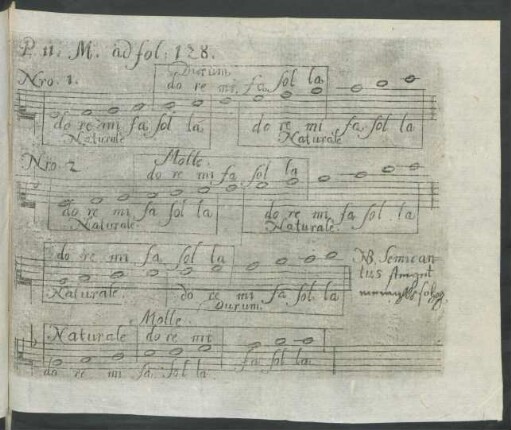 P. 11. M. ad fol: 128.
Nro. 1.
Durum
do re mi fa sol la
do re mi fa sol la
Naturale
do re mi fa sol la
Naturale
Nro. 2
Molle.
do re mi fa sol la
do re mi fa sol la
Naturale.
do re mi fa sol la
Naturale.
do re mi fa sol la
Naturale.
do re mi fa sol la
Durum.
NB. Semican-
tus
Molle.
Naturale do re mi
fa sol la
do re mi fa sol la